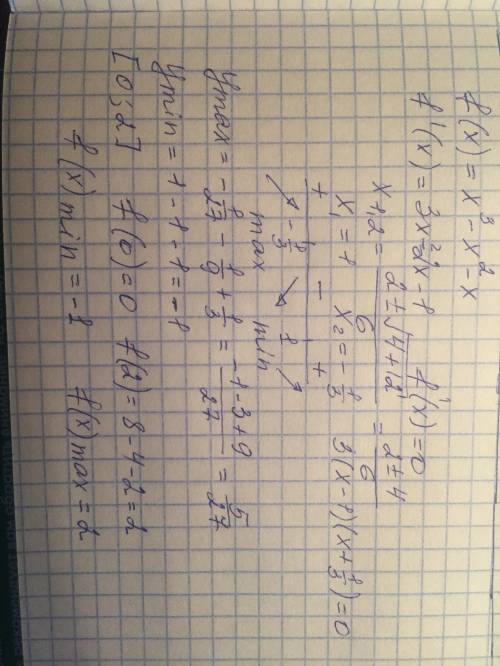 f(x) = x³ - x² - x
f'(x) = 3x² - 2x - 1   f'(x) = 0
x₁,₂ = (2 ± √(4+12))/6 = (2 ± 4)/6
x₁ = 1   x₂ = -1/3   3(x-1)(x+1/3) = 0
+ - +
-1/3   1
max   min
ymax = -1/27 - 1/9 + 1/3 = (-1-3+9)/27 = 5/27
ymin = 1-1-1 = -1
[0;2]   f(0) = 0   f(2) = 8-4-2 = 2
f(x)min = -1   f(x)max = 2